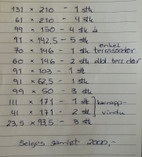 131 × 210 - 1 stk
61 × 210 - 4 stk
99 × 150 - 4 stk
91 × 142,5 - 5 stk
70 × 146 - 1 stk enkel terrassedør
60 × 146 - 2 stk dbl terr.dør
91 × 103 - 1 stk
91 × 62,5 - 1 stk
99 × 50 - 3 stk
111 × 171 - 1 stk
41 × 171 - 2 stk
23,5 × 93,5 - 3 stk
Selges samlet 2000,-